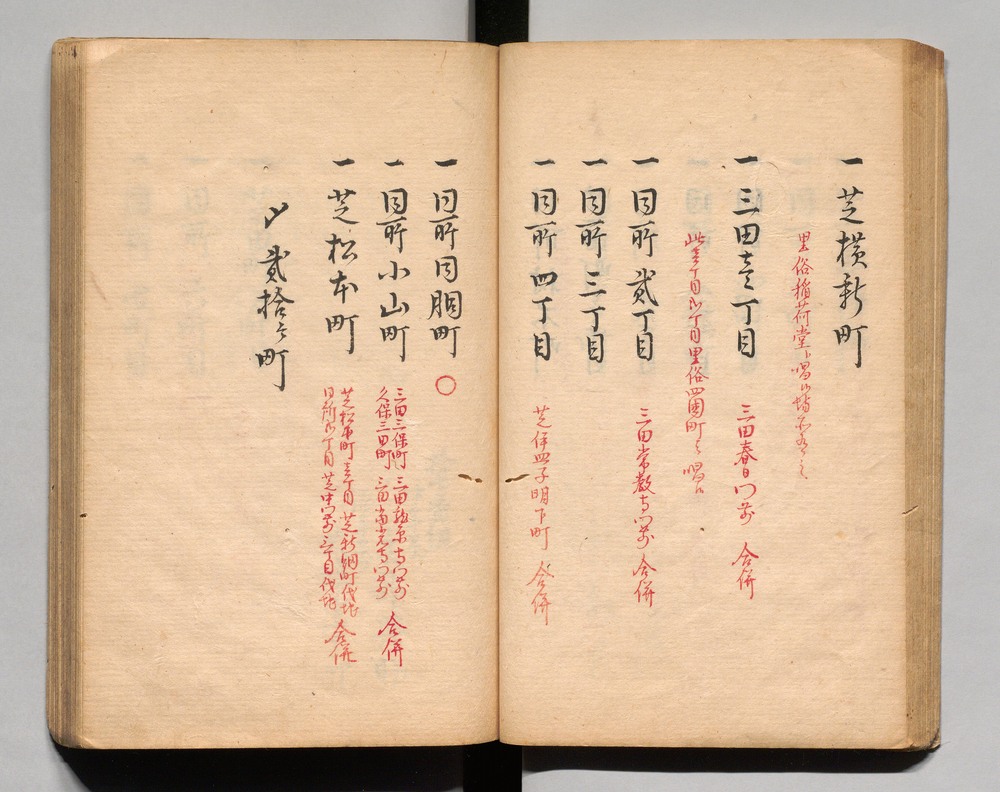 一 芝横新町
里俗稲荷堂ト唱候場所有之
一 三田壱丁目 三田春日門前 合併
此壱丁目弐丁目里俗四国町と唱候
一 同所弐丁目 三田常教寺門前 合併
一 同所三丁目
一 同所四丁目 芝伊皿子明下町 合併
一 同所同朋町 〇
一 同所小山町 三田三保町 三田龍原寺門前
久保三田町 三田當光寺門前 合併
一 芝松本町 芝松本町壱丁目 芝新網町代地
同所弐丁目 芝中門前三丁目代地 合併
〆弐拾七町